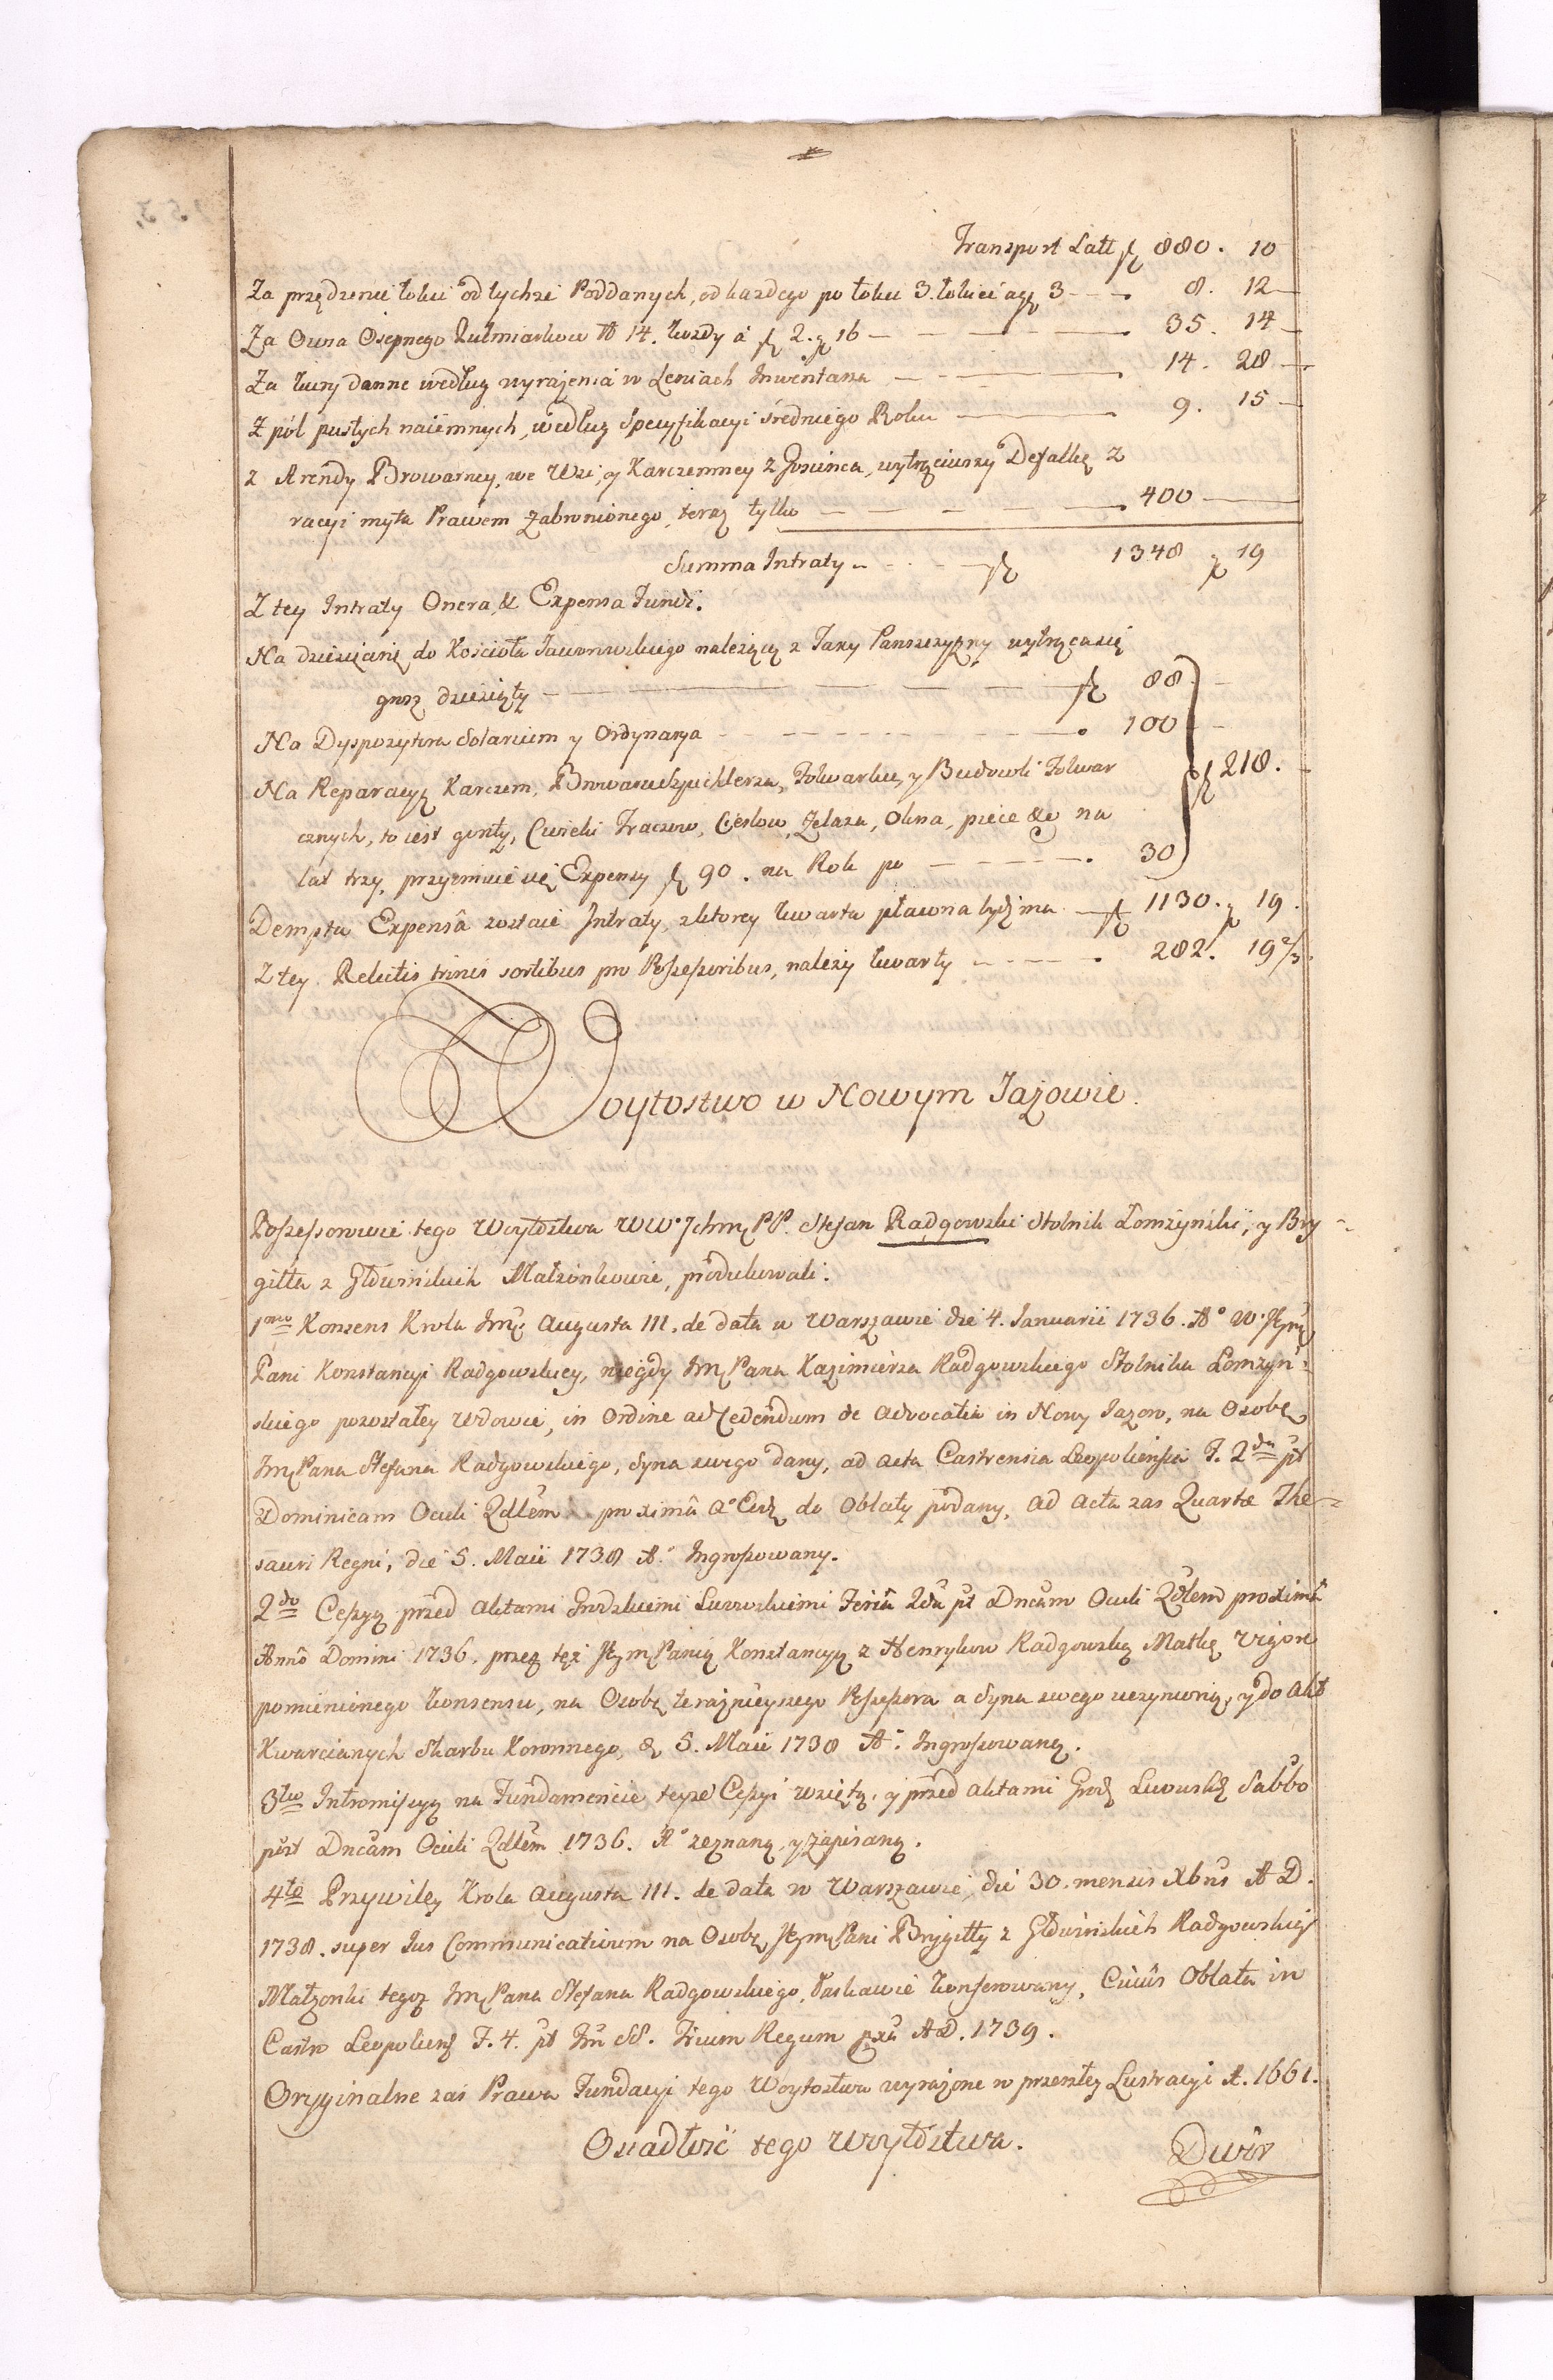 Transport Latt fl 880. 10
Za przędzenie łokci od tychże Poddanych, od każdego po łokci 3. łokieć a gr 3 — 8. 12
Za Owsa Osepnego Pułmiarkow N 14. każdy á fl 2. gr 16 — 35. 14
Za kury danne według wyrażenia w Inwentarza — 14. 28
Z pól pustych naiemnych, według Specyfikacyi średniego Roku — 9. 15
z Arendy Browarney, we Wsi, y Karczemney z Goscinca, wytrąciwszy Defalkę z
racyi myta Prawem zabronionego, teraz tylko — 400
Summa Intraty — fl 1348 gr 19
Z tey Intraty Onera, & Expensa Fundi.
Na dziesięcinę do Kościoła Jaworowskiego należącą z Taxy Panszczyzny wytrąca się
grosz dziesiąty — fl 88
Na Dyspozytora Solarium y Ordynarya — 100
Na Reparacyą Karczem, Browaru Szpichlerza, Folwarku, y Budowli Folwar
cznych, to iest gonty, Cwieki Traczow, Cieslow, Zelaza, Okna, piece &c na
lat trzy, przyimuie się Expensy fl 90. na Rok po — 30
fl 218.
Dempta Expensâ zostaie Intraty, z ktorey kwarta płacona bydź ma — fl 1130. gr 19.
Z tey Relictis trinis sortibus pro Possessoribus, należy kwarty — 282. 19 2/3.
Woytostwo w Nowym Jażowie.
Possessorowie tego Woytostwa WW. Ichmć PP. Stefan Radgowski Stolnik Łomżyński, y Bry
gitta z Głuwińskich Małżonkowie, produkowali.
1mo Konsens Krola Jmći Augusta III. de data w Warszawie die 4. Januarii 1736. Aº W. Jeymć
Pani Konstancyi Radgowskiey, niegdy Jmć Pana Kazimierza Radgowskiego Stolnika Łomżyn-
skiego pozostałey Wdowie, in Ordine ad Cedendum de Advocatia in Nowy Jazow, na Osobę
Jmć Pana Stefana Radgowskiego, Syna swego dany, ad Acta Castrensia Leopoliensia F. 2da pt
Dominicam Oculi Qdlem proximâ Aº Eod do Oblaty podany, ad Acta zas Quartæ The-
sauri Regni, die 5. Maii 1738 A. Ingrossowany.
2do Cessyą przed Aktami Grodzkiemi Lwowskiemi Feriâ 2da pt Dncam Oculi Qdlem proximâ
Anno Domini 1736. przez tęż Jeymć Panią Konstancyą z Henrykow Radgowską Matkę vigore
pomienionego konsensu, na Osobę teraźnieyszego Possessora a Syna swego uczynioną, y do Akt
Kwarcianych Skarbu Koronnego, & 5. Maii 1738 A. Ingrossowaną.
3tio Intromissyą na Fundamencie teyże Cessyi wziętą, y przed Aktami Grodz Lwowskie Sabbo
post Dncam Oculi Qdlem 1736. Aº zeznaną y zapisaną.
4to Przywiley Krola Augusta III. de data w Warszawie, die 30. mensis Xbris A D.
1738. super Ius Communicativum na Osobę Jeymć Pani Brygitty z Głuwińskich Radgowskiey
Małżonki tegoż Jmć Pana Stefana Radgowskiego, łaskawie konferowany, Cuius Oblata in
Castro Leopoliens F. 4. pt Fm SS. Trium Regum pxa A D. 1739.
Oryginalne zaś Prawa Fundacyi tego Woytostwa wyrażone w przeszłey Lustracyi A. 1661.
Osiadłość tego Woytostwa.
Dwór